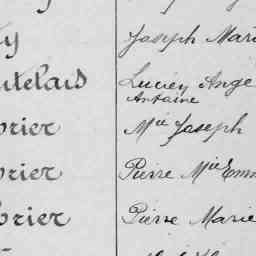 y Joseph Mari
utelais Lucien Ange
Antoine
orier Mie Joseph
orier Pierre Mie Emm
orier Pierre Marie